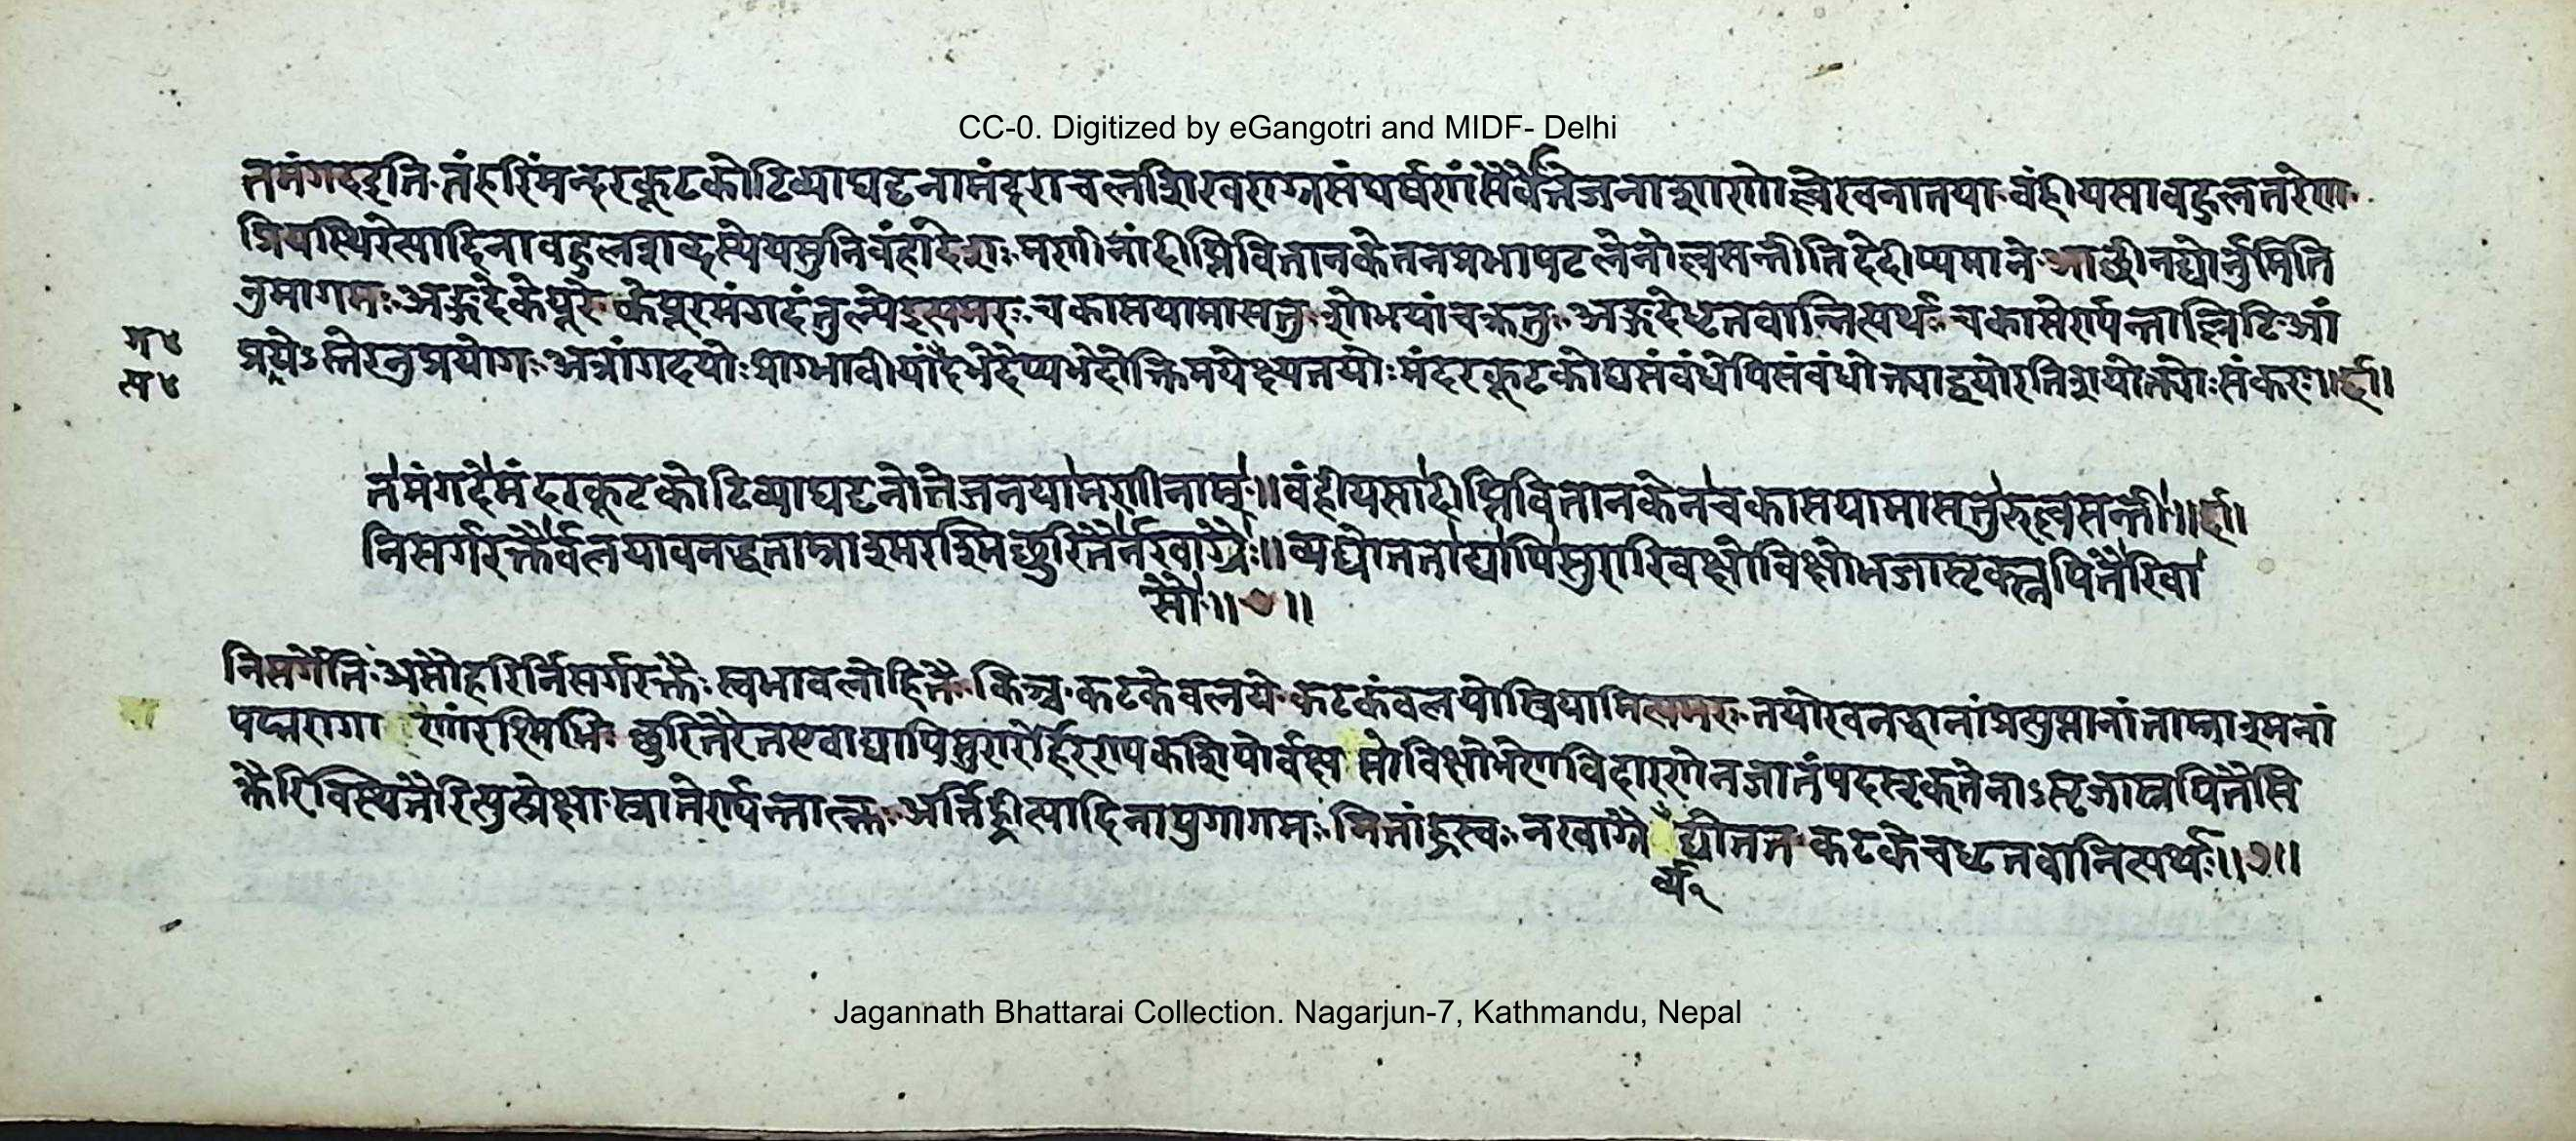 CC-0. Digitized by eGangotri and MIDF- Delhi
तमंगदइति तंहरिंमन्दरकूटकोटिव्याघट्टनामंद्राचलशिखराग्रसंघर्षणं सैवोत्तेजनाशाणोल्लेखनातया वंहीयसावहुलतरेण
प्रियस्थिरेत्यादिनावहुलशब्दस्येयसुनिवंहादेशः मणीनांदीप्तिवितानकेतनप्रभापटलेनोल्लसन्तीतिदेदीप्यमाने आछीनद्योर्नुमिति
नुमागमः अङ्गदेकेयूरे केयूरमंगदंतुल्येइत्यमरः चकासयामासतुः शोभयांचक्रतुः अङ्गदेधृतवानित्यर्थः चकासेर्ण्यन्ताल्लिटिआं
प्रत्यये ऽस्तेरनुप्रयोगः अत्रांगदयोः प्राग्भावीयांदैभेदेप्यभेदोक्तिमपेक्ष्यतयोः मंदरकूटकोद्यसंवंधेपिसंवंधोक्त्याद्वयोरतिशयोक्त्योः संकरः॥६॥
प्र४
त्य४
तमंगदेमंदरकूटकोटिव्याघट्टनोत्तेजनयामणीनाम्॥वंहीयसादीप्तिवितानकेनचकासयामासतुरुल्लसन्ती॥६॥
निसर्गरक्तैर्वलयावनद्धताम्राश्मरश्मिछुरितैर्नखाग्रैः॥व्यद्योतताद्यापिसुरारिवक्षोविक्षोभजासृक्स्नपितैरिवा
सौ॥७॥
निसर्गेति असौहरिर्निसर्गरक्तैः स्वभावलोहितैः किञ्च कटकेवलये कटकंवलयोस्त्रियामित्यमरः तयोरवनद्धानांप्रत्युप्तानांताम्राश्मनां
पद्मरागाणांरश्मिभिः छुरितैरतएवाद्यापिसुरारेर्हिरण्यकशिपोर्वक्षसोविक्षोभेणविदारणेनजातंयदसृक्तेनाऽसृजास्नपितैःसि
क्तैरिवस्थितैरित्युत्प्रेक्षा स्नातेर्ण्यन्तात्क्तः अर्त्तिह्रीत्यादिनापुगागमः मितांह्रस्वः नखाग्रै द्योतत कटकेचधृतवानित्यर्थः॥७॥
र्व्य१
Jagannath Bhattarai Collection. Nagarjun-7, Kathmandu, Nepal